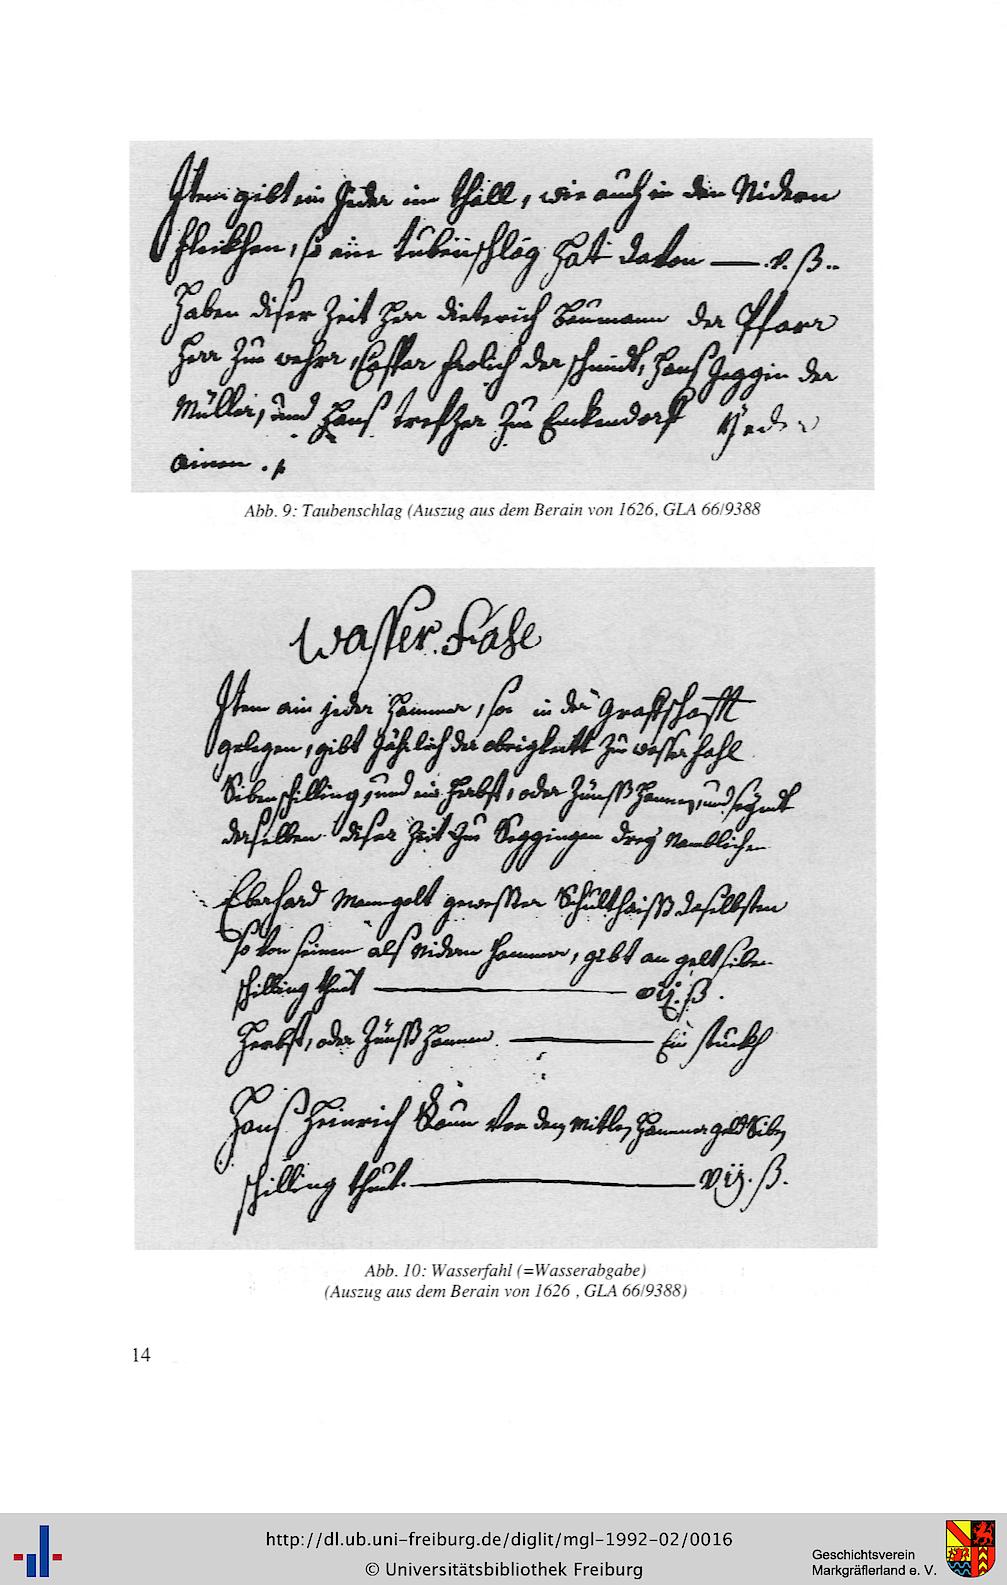 Item gibt ein Jeder im thall, wie auch in den Nidern
fleckhen, so ein tubenschlag hat davon — .v. ß..
Haben diser Zeit Herr dieterich Baumann der Pfarr
Herr Zu wehr, Casper frolich der schmidt, Hans Jeggin der
Müller, und Hans trefzer Zu Enkendorff Jeder
ainen .
Abb. 9: Taubenschlag (Auszug aus dem Berain von 1626, GLA 66/9388
Wasser Fahl
Item ain jeder Hammer, so in der Graffschafft
gelegen, gibt Jährlich der obrigkeitt Zu wasserfahl
Siben schilling, und ein Herbst, oder Zünß Hannen, und seyndt
derselben diser Zeit Zu Seggingen drey Namblichen
Eberhard Manngolt gewesster Schultheiss daselbsten
so von seinem als Nidern Hammer, gibt an gelt siben
schilling thut — vij. ß .
Herbst, oder Zünß Hannen — Ein stuckh
Hans Heinrich von dem Mitlen Hammer geld Siben
schilling thut. — vij. ß.
Abb. 10: Wasserfahl (=Wasserabgabe)
(Auszug aus dem Berain von 1626 , GLA 66/9388)
14
http://dl.ub.uni-freiburg.de/diglit/mgl-1992-02/0016
© Universitätsbibliothek Freiburg
Geschichtsverein
Markgräflerland e. V.